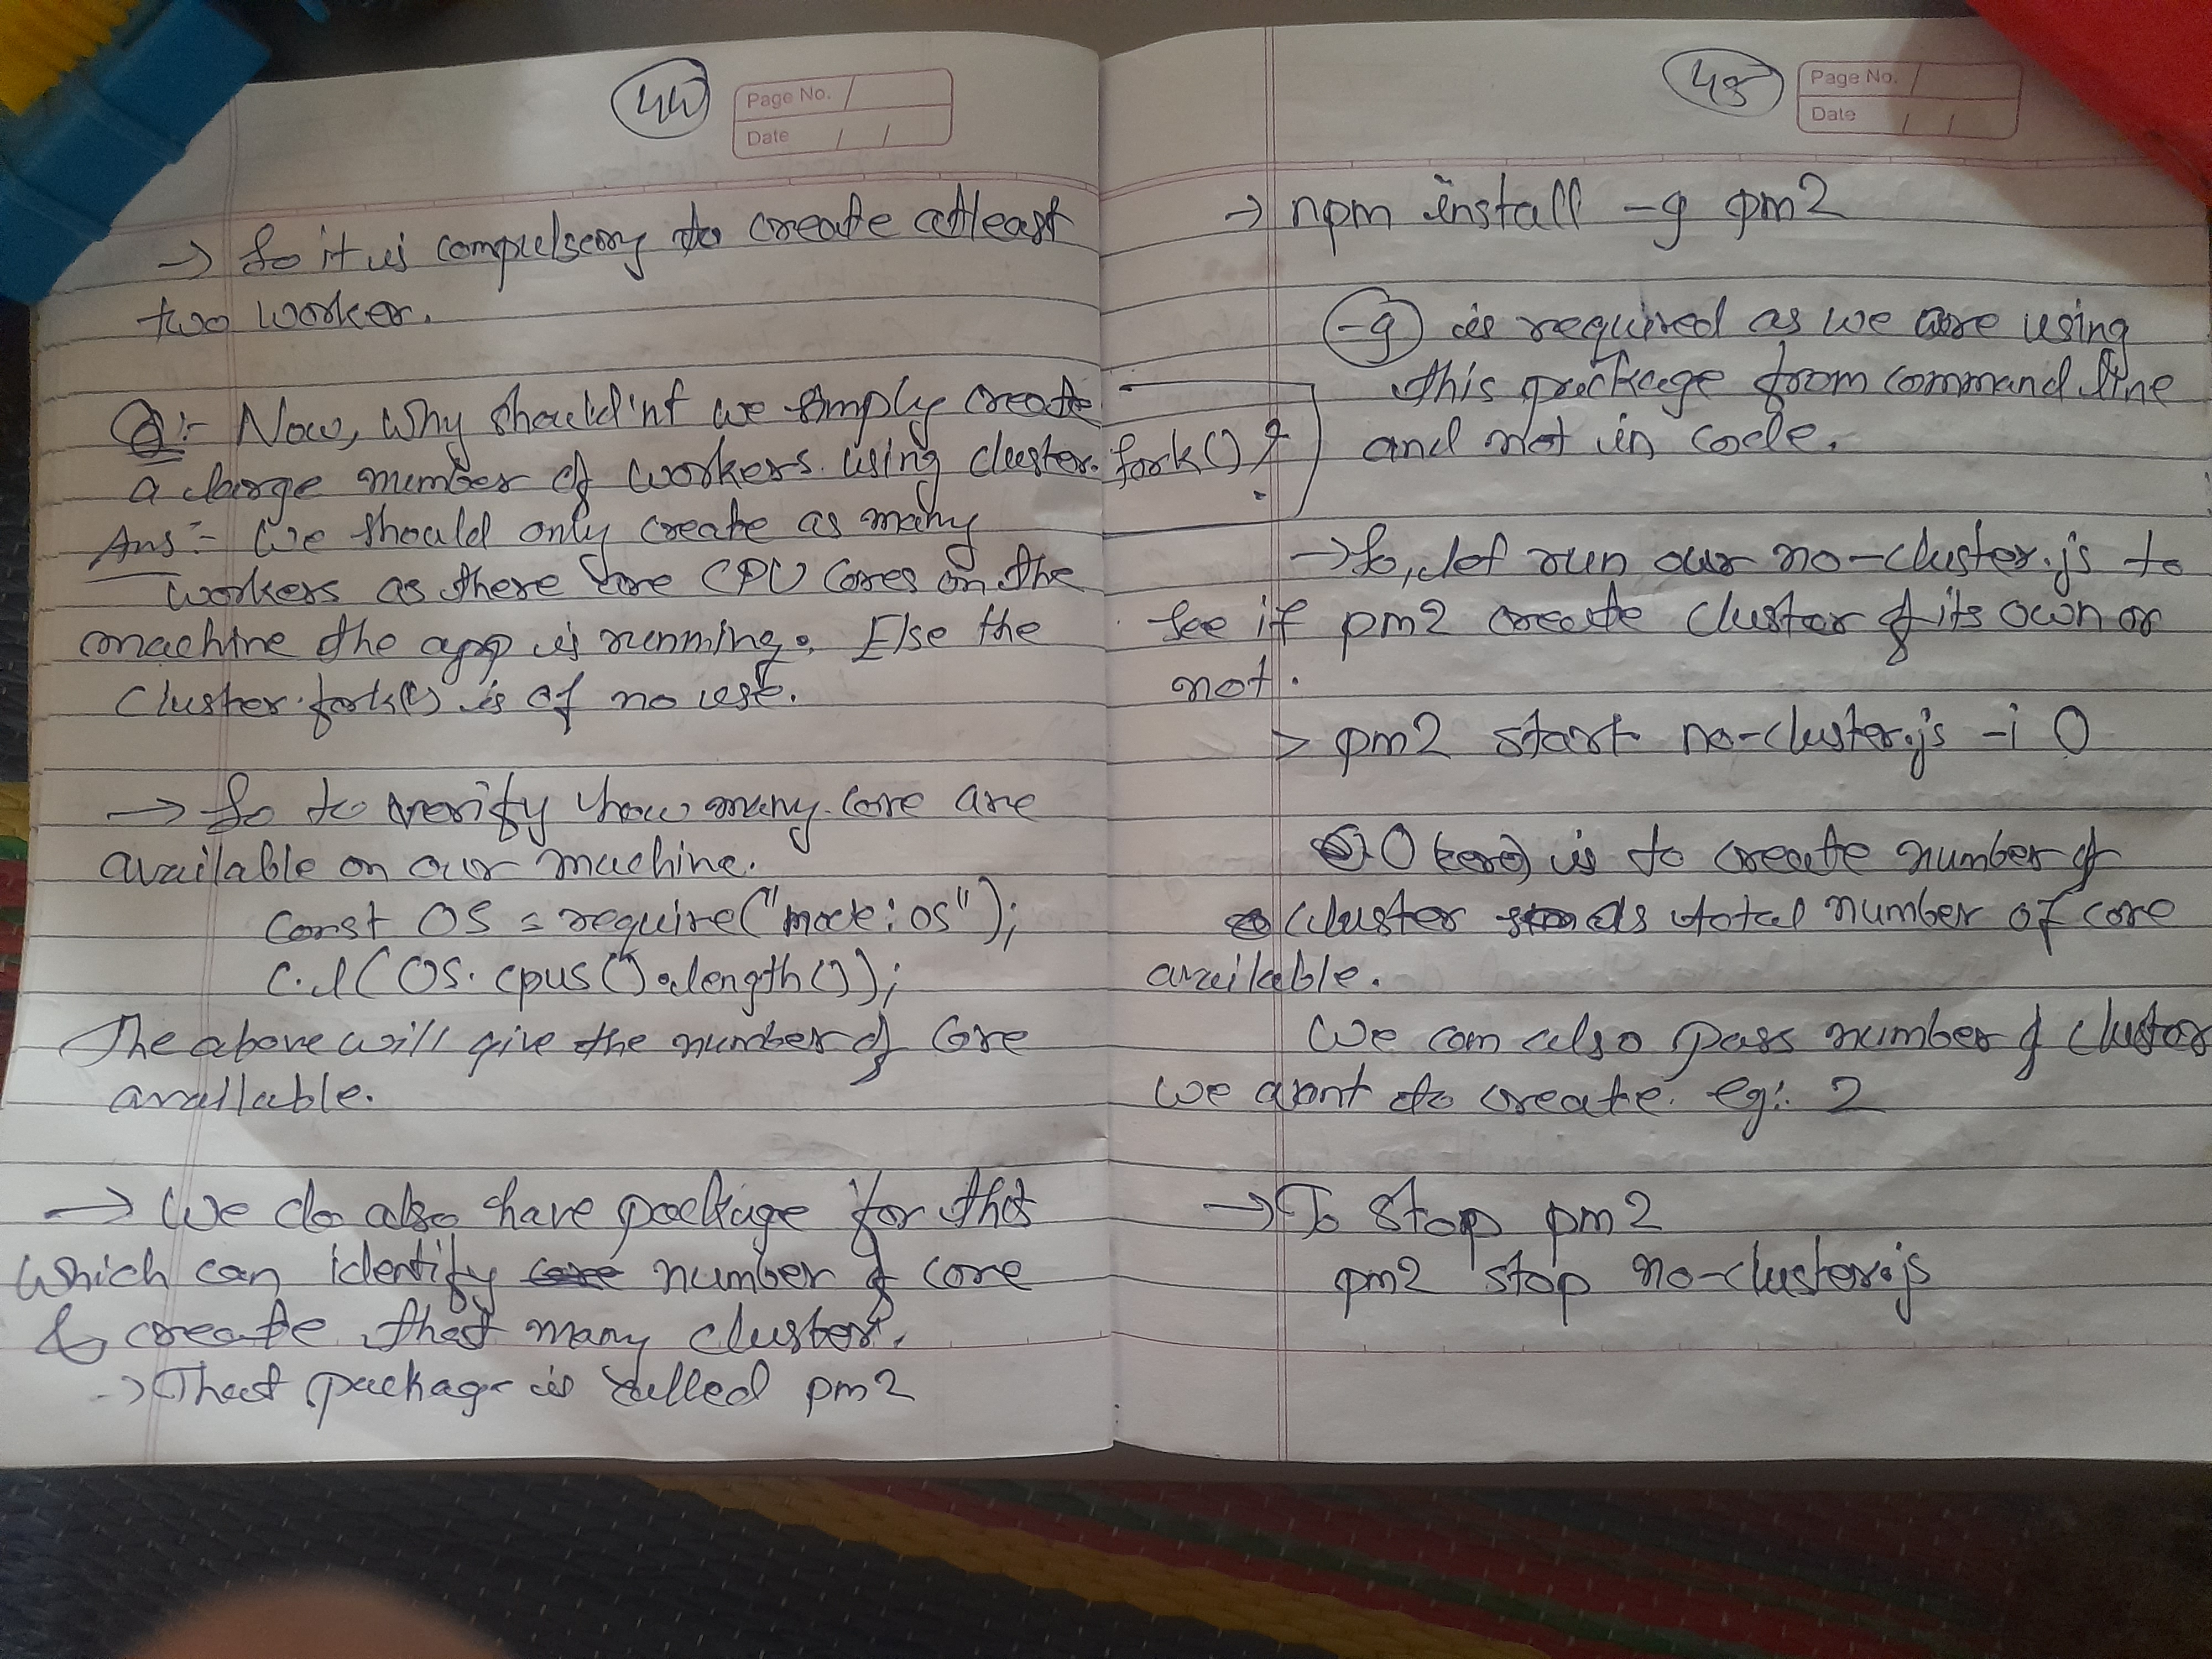 44
Page No.
Date
→ So it is compulsory to create atleast
two worker.
Q:- Now, why shouldn't we simply create
a large number of workers using cluster.fork()?
Ans:- We should only create as many
workers as there are CPU cores on the
machine the app is running. Else the
cluster.fork() is of no use.
→ So to verify how many core are
available on our machine.
const OS = require("node:os");
c.l(OS.cpus().length());
The above will give the number of core
available.
→ We do also have package for that
which can identify number of core
& create that many cluster.
→ That package is called pm2
45
Page No.
Date
→ npm install -g pm2
-g is required as we are using
this package from command line
and not in code.
→ So, let run our no-cluster.js to
see if pm2 create cluster of its own or
not.
> pm2 start no-cluster.js -i 0
0 (zero) is to create number of
cluster as total number of core
available.
We can also pass number of cluster
we want to create. eg: 2
→ To stop pm2
pm2 stop no-cluster.js